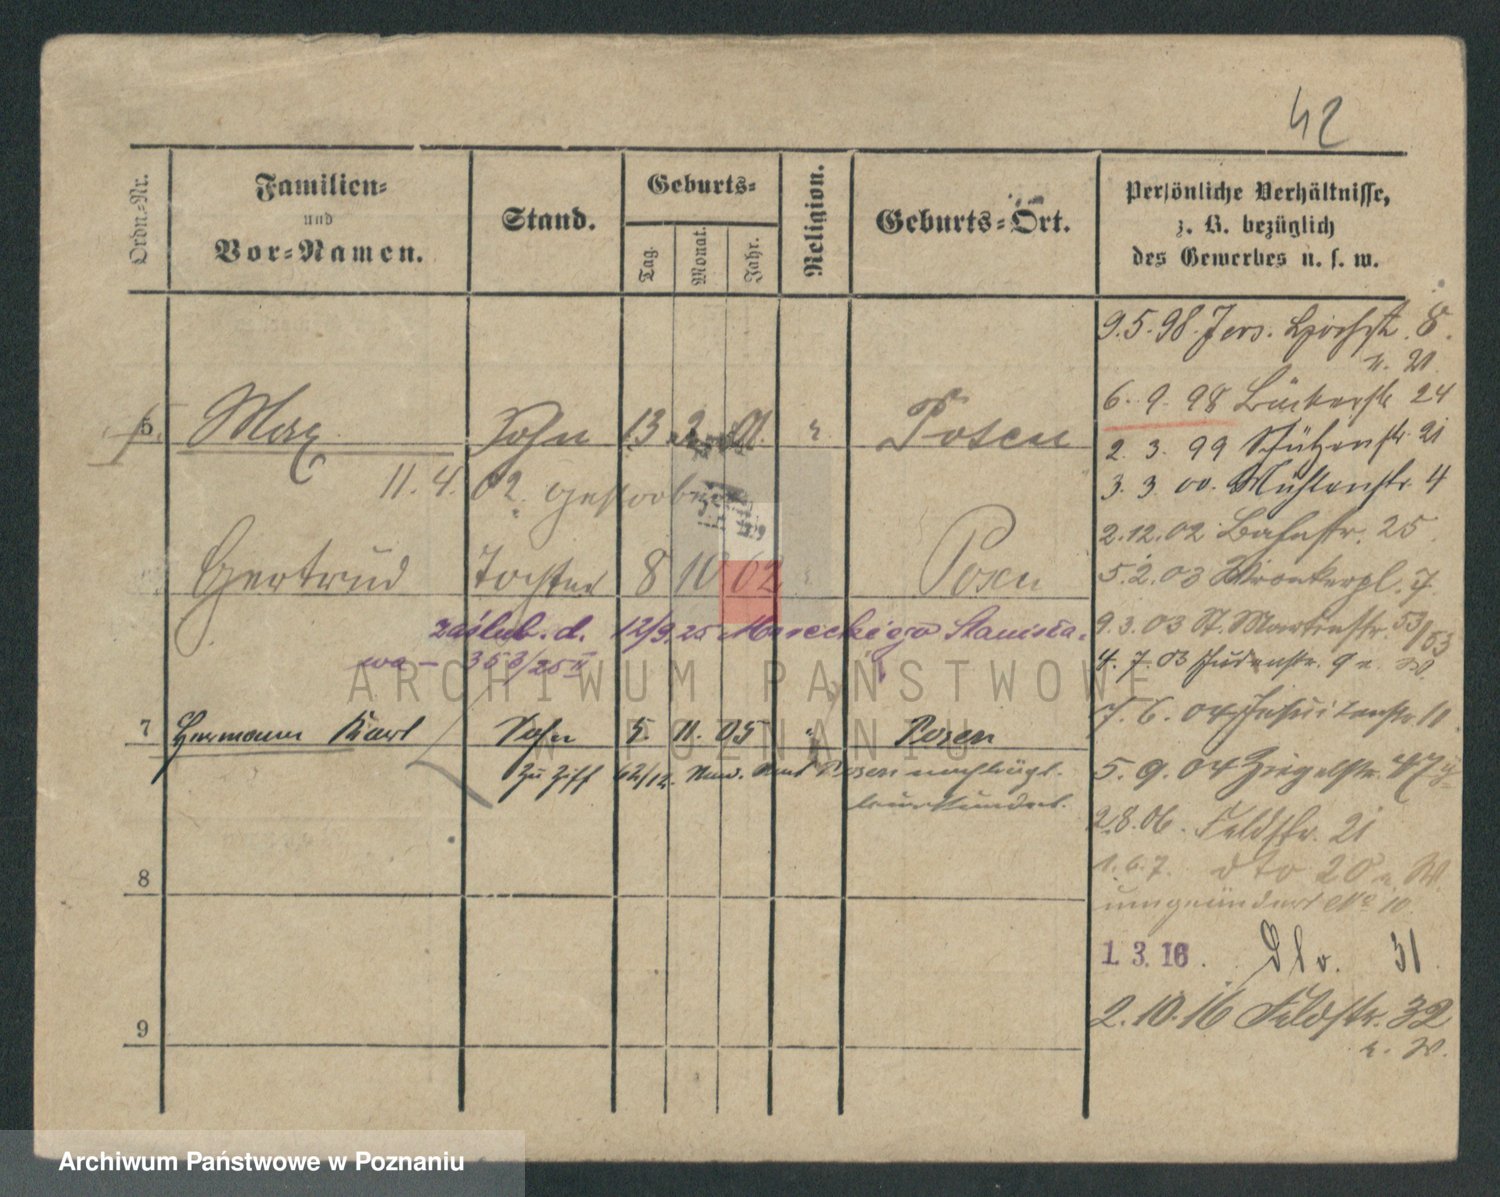 42
Ordn.-Nr.
Familien-
und
Vor-Namen.
Stand.
Geburts-
Tag.
Monat.
Jahr.
Religion.
Geburts-Ort.
Persönliche Verhältnisse,
z. B. bezüglich
des Gewerbes u. s. w.
9.5.98. Jers. 8.
n. 21
5. Max Sohn 13 2 01. " Posen
6. 9. 98 Bückerstr 24
2. 3. 99 Schützenstr. 21
11. 4. 02. gestorben
3. 3. 00. Mühlenstr. 4
2.12.02 Bahnstr. 25.
Gertrud Tochter 8 10 02 Posen
5.2.03 Wronkerpl. 7
zaślub. d. 12/9.25 Mareckiego Stanisła-
wa - 353/25 II
9.3.03 St. Martinstr. 53/53
4. 7. 03 Judenstr. 9
7. 6. 04 Jesuitenstr. 11
7 Hermann Karl Sohn 5. 11. 05 " Posen
Zu Ziff 62/12. Posen nachträgl.
beurkundet.
5. 9. 04 Ziegelstr. 47
2.8.06. Feldstr. 21
1.6.7. dto 20 n. W.
umgeändert No 10
8
1. 3. 16. Dto. 31.
2.10.16 Feldstr. 32
n. W.
9
ARCHIWUM PAŃSTWOWE
W POZNANIU
Archiwum Państwowe w Poznaniu